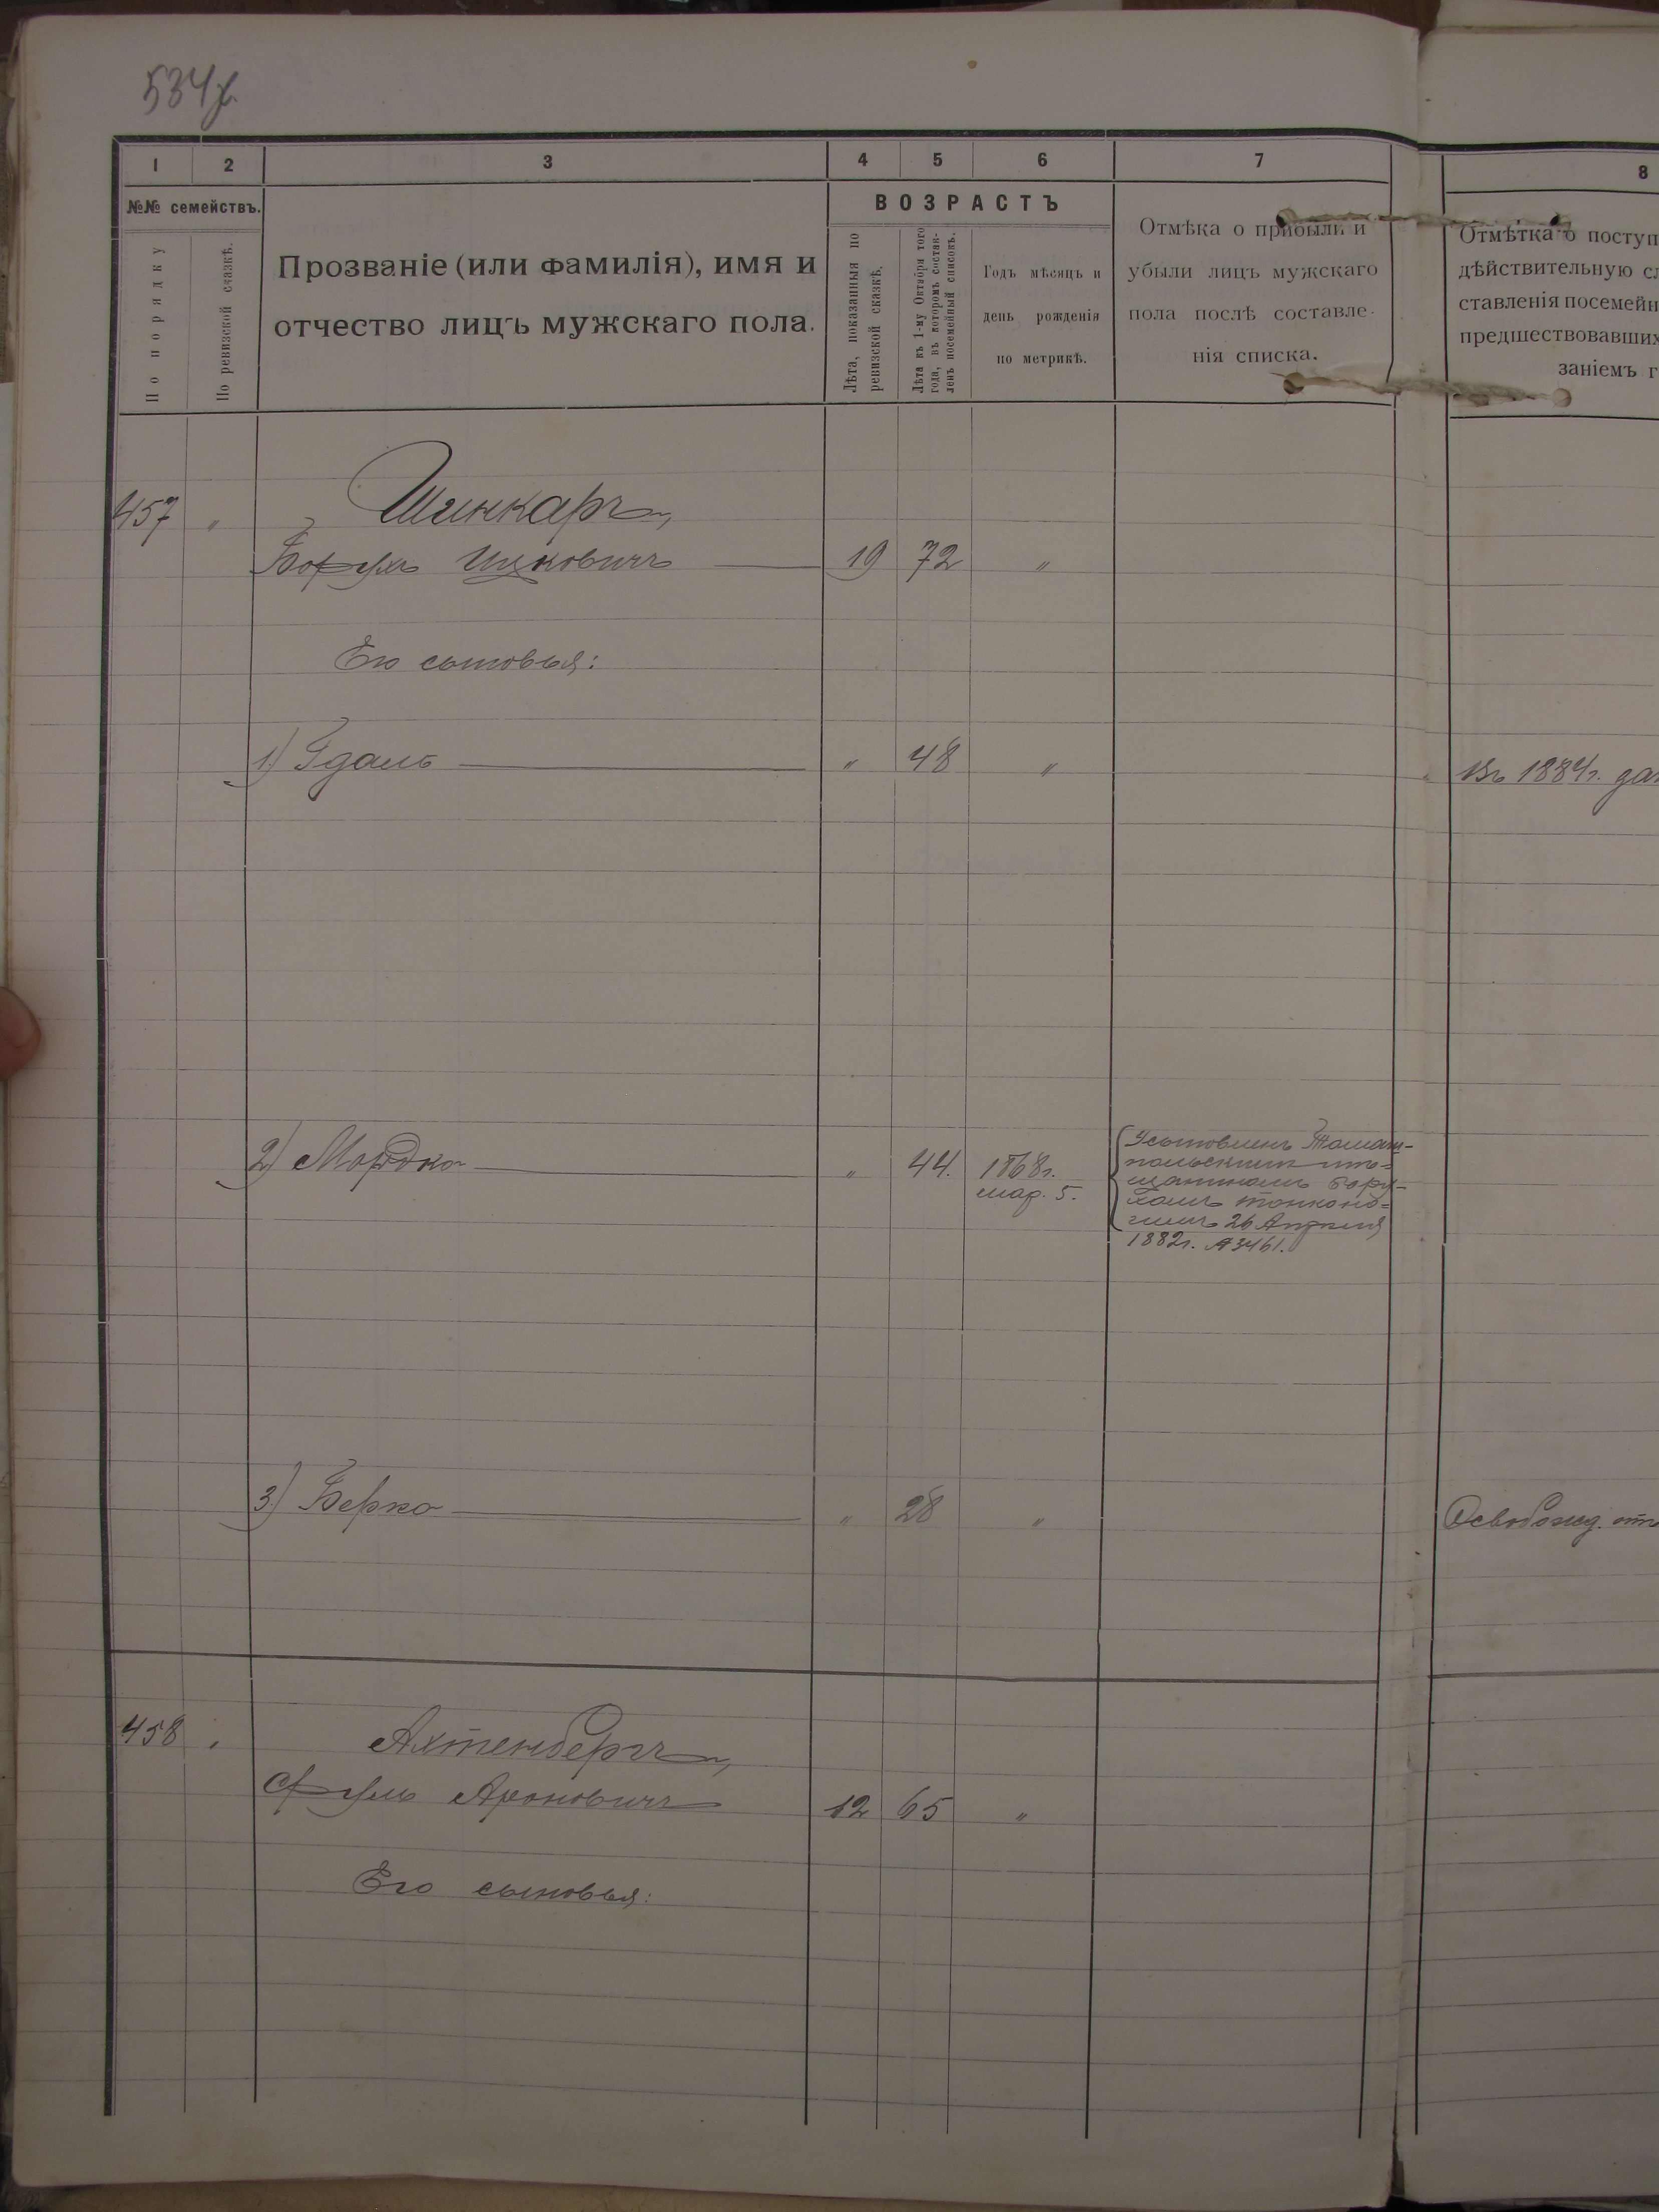 1 2 3 4 5 6 7 8
№№ семействъ.
По порядку
По ревизской сказкѣ.
Прозваніе (или фамилія), имя и
отчество лицъ мужскаго пола.
ВОЗРАСТЪ
Лѣта, показанныя по
ревизской сказкѣ.
Лѣта къ 1-му Октября того
года, въ которомъ состав-
ленъ посемейный списокъ.
Годъ мѣсяцъ и
день рожденія
по метрикѣ.
Отмѣка о прибыли и
убыли лицъ мужскаго
пола послѣ составле-
нія списка.
Отмѣтка о поступ
дѣйствительную сл
ставленія посемейн
предшествовавших
заніемъ г
457 " Шинкаръ,
Борухъ Ицковичъ 19 72 "
Его сыновья:
1) Гдаль " 48 "
Въ 1884г. да
2) Мордко " 44. 1868г.
мар. 5.
Усыновленъ Томаш-
польскимъ мѣ-
щаниномъ Бору-
хомъ Тонконо-
гимъ 26 Апрѣля
1882г. №3461.
3) Берко " 28 "
Освобожд. отъ
458 " Ахтенбергъ,
Сруль Ароновичъ 12 65 "
Его сыновья: